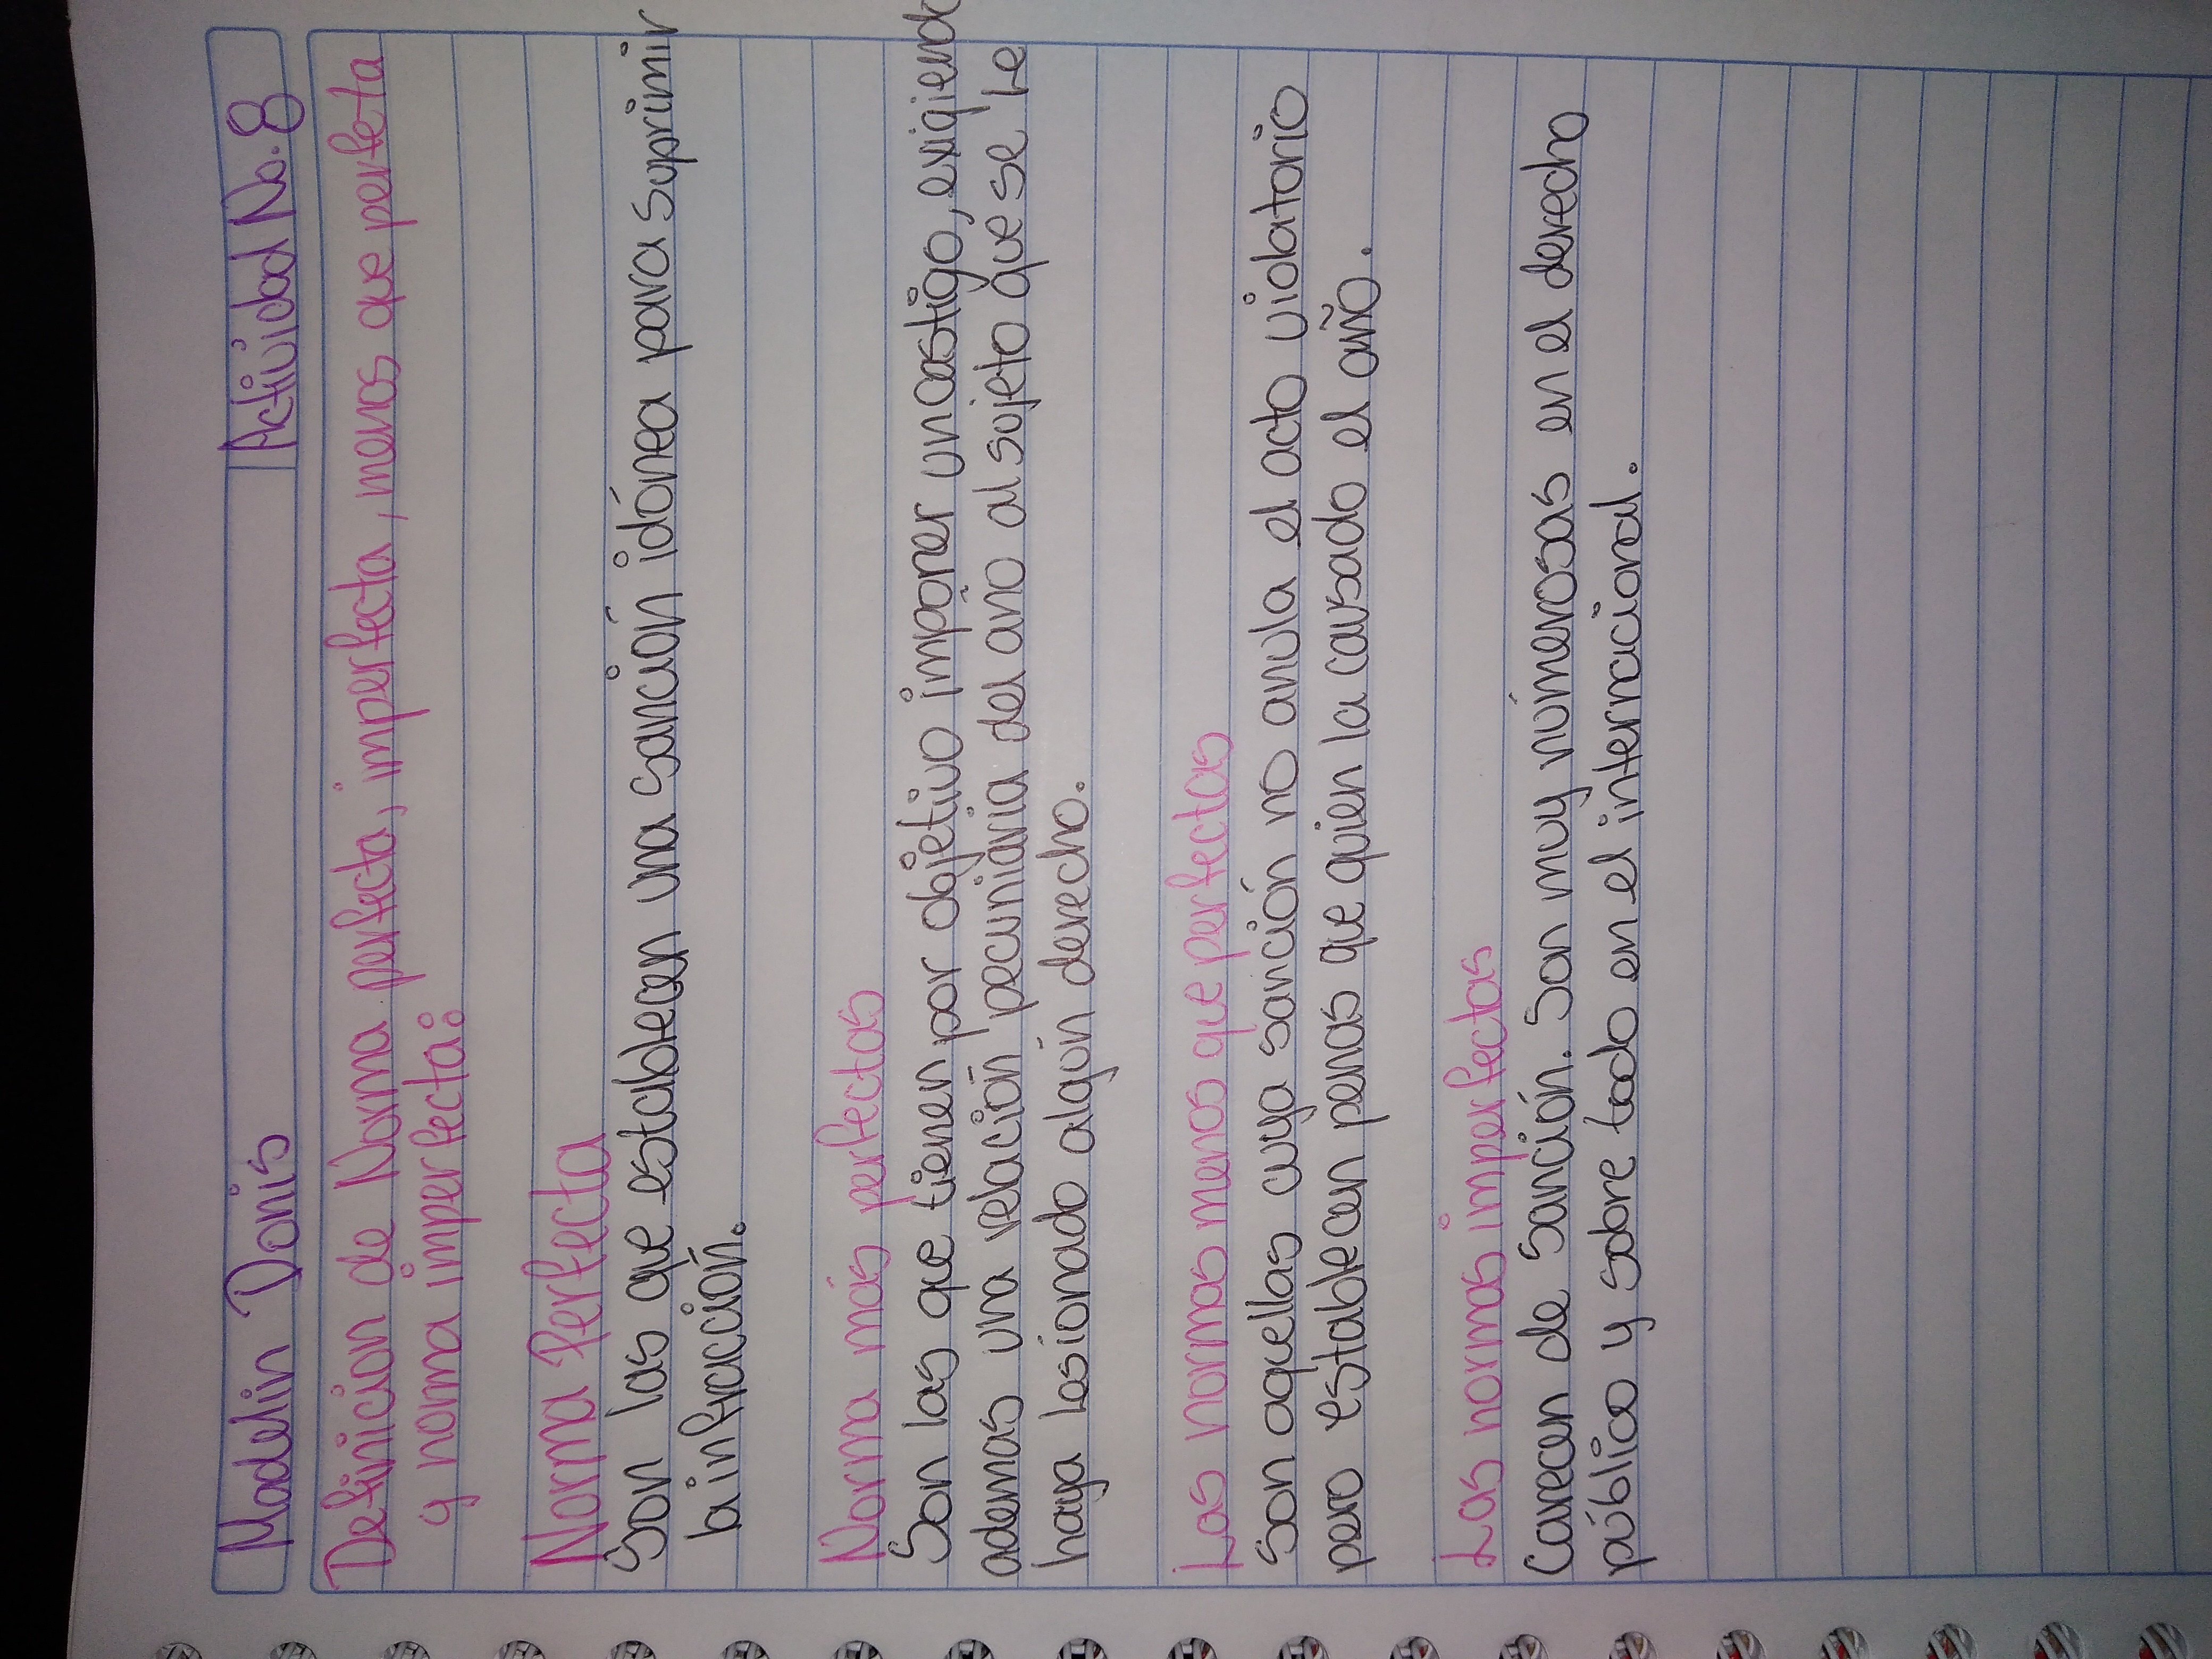 Madelin Donis
Actividad No. 8
Definicion de Norma perfecta, imperfecta, menos que perfeta
y norma imperfecta:
Norma Perfecta
Son las que establecen una sanción idónea para suprimir
la infracción.
Norma más perfectas
Son las que tienen por objetivo imponer un castigo, exigiendo
ademas una relación pecuniaria del año al sujeto que se le
haya lesionado algún derecho.
Las normas menos que perfectas
Son aquellas cuya sanción no anula el acto violatorio
pero establecen penas que quien la causado el año.
Las normas imperfectas
Carecen de Sanción. Son muy númerosas en el derecho
público y sobre todo en el internacional.